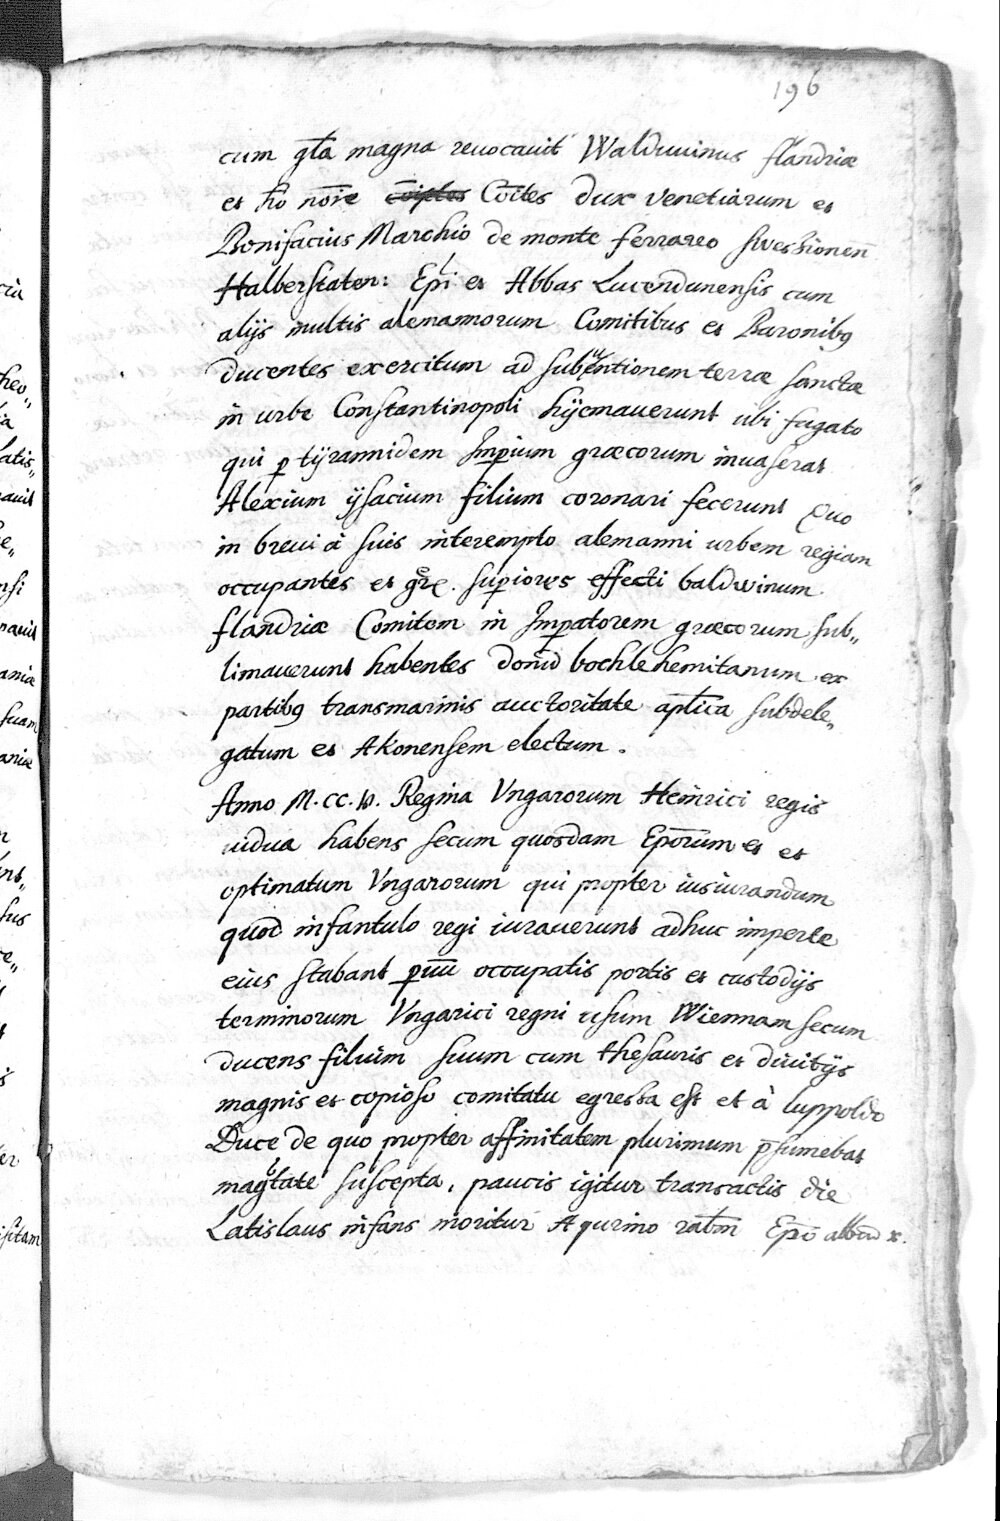 196
cum gr̄a magna reuocauit Walduuinus flandriae
et h̄o nōie c̄oiptos Cōites dux Venetiarum et
Bonifacius Marchio de monte ferrareo swessionen̄
Halberstaten: Ep̄i et Abbas Lucendunensis cum
alijs multis alemannorum Comitibus et Baronibꝰ
ducentes exercitum ad subuentionem terrae sanctae
in urbe Constantinopoli hijemauerunt ubi fugato
qui ꝑ tijrannidem Imꝑium graecorum inuaserat
Alexium ijsacium filium coronari fecerunt Quo
in breui à suis interempto alemanni urbem regiam
occupantes et gr̄e. suꝑiores effecti baldwinum
flandriae Comitem in Imꝑatorem graecorum sub„
limauerunt habentes don̄u bochlehemitanum ex
partibꝰ transmarinis auctoritate apl̄ica subdele„
gatum et Akonensem electum.
Anno M.CC.V. Regina Vngarorum Heinrici regis
uidua habens secum quosdam Ep̄orum et et
optimatum Vngarorum qui propter iusiurandum
quod infantulo regi iurauerunt adhuc imperte
eius stabant occupatis portis et custodijs
terminorum Vngarici regni usum Wiennam secum
ducens filium suum cum thesauris et diuitijs
magnis et copioso comitatu egressa est et à luppoldo
Duce de quo propter affinitatem plurimum p̄sumebat
magtate suscepta, paucis igitur transactis die
Latislaus infans moritur A qurino ratbn̄ Ep̄o